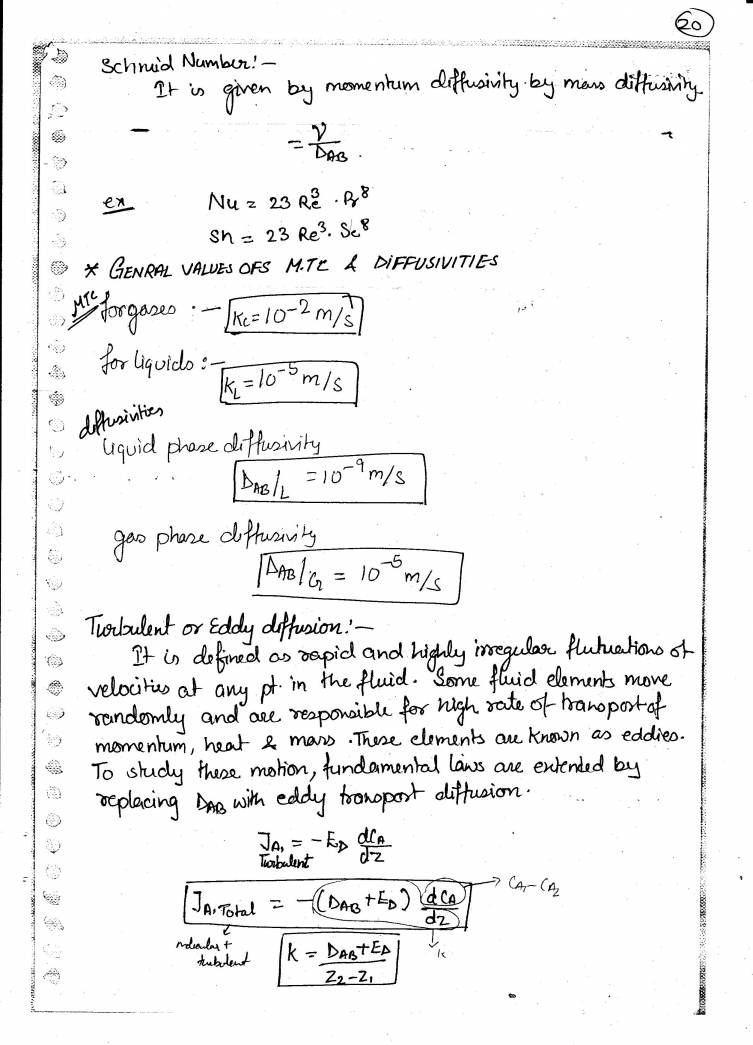 20
Schmid Number:-
It is given by momentum diffusivity by mass diffusivity
= ν/D_AB.
ex Nu = 23 Re^3 . Pr^8
Sh = 23 Re^3. Sc^8
* GENRAL VALUES OFS M.TC & DIFFUSIVITIES
MTC for gases :- Kc=10^-2 m/s
for liquids :- K_L=10^-5 m/s
diffusivities
liquid phase diffusivity
D_AB/L =10^-9 m/s
gas phase diffusivity
D_AB/G = 10^-5 m/s
Turbulent or Eddy diffusion:-
It is defined as rapid and highly irregular flutuations of
velocities at any pt. in the fluid. Some fluid elements move
randomly and are responsible for high rate of transport of
momentum, heat & mass. These elements are known as eddies.
To study these motion, fundamental laws are extended by
replacing D_AB with eddy transport diffusion.
J_A, = -E_D dC_A/dz
Turbulent
J_A, Total = -(D_AB+E_D) (dC_A/dz) → C_A1-C_A2
molecular + turbulent
k = D_AB+E_D/Z_2-Z_1
k